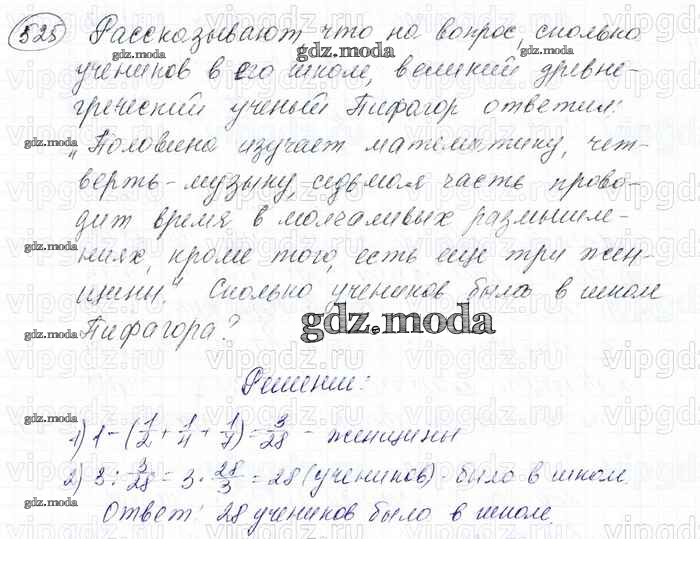 525 Рассказывают, что на вопрос, сколько
учеников в его школе, великий древне-
греческий ученый Пифагор ответил:
"Половина изучает математику, чет-
верть - музыку, седьмая часть прово-
дит время в молчаливых размышле-
ниях, кроме того, есть еще три жен-
щины". Сколько учеников было в школе
Пифагора?
gdz.moda
Решение:
1) 1 - (1/2 + 1/4 + 1/7) = 3/28 - женщины
2) 3 : 3/28 = 3 · 28/3 = 28 (учеников) - было в школе.
Ответ: 28 учеников было в школе.